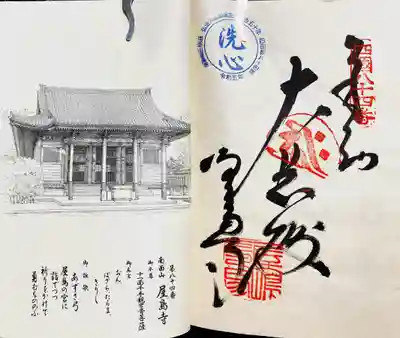 奉納
四國八十四番
大悲殿
屋島寺
洗心
第八十四番
南面山 屋島寺
御本尊
十一面千手観世音菩薩
御真言
おん
ばざら たらま
きりく
御詠歌
あずさ弓
屋島の宮に
詣でつつ
祈りをかけて
勇むもののふ